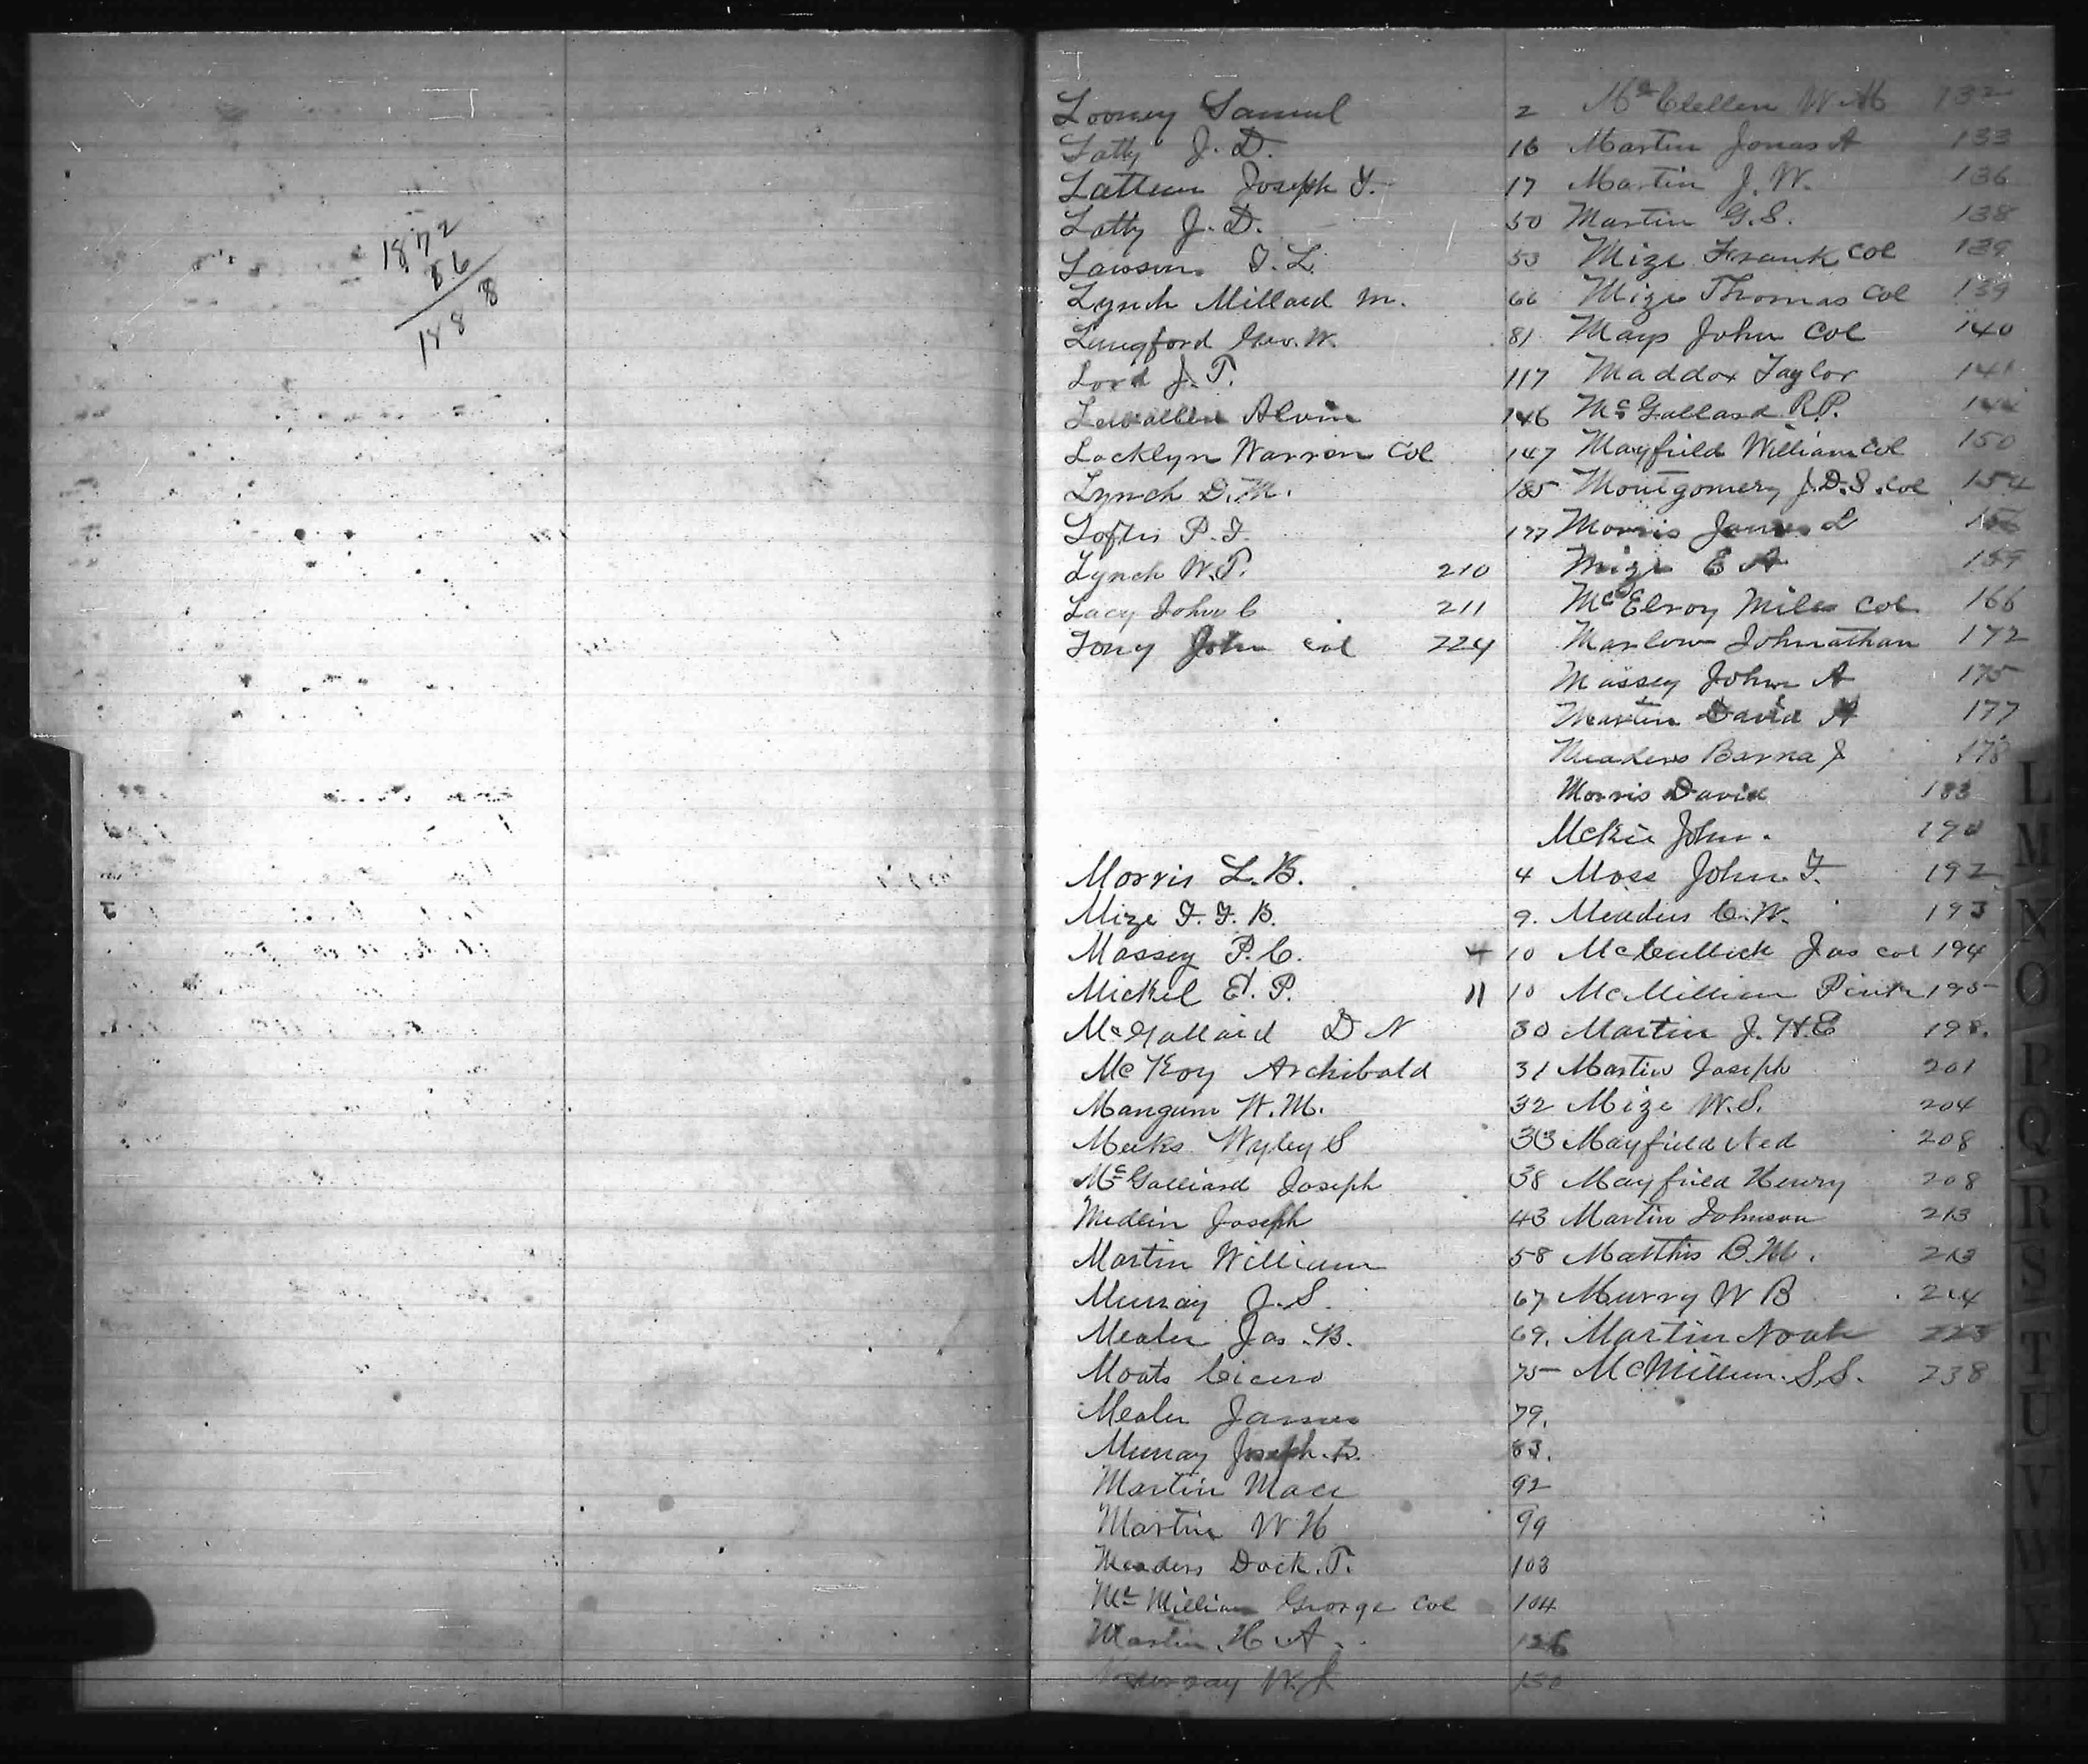 1872
86
188 8
Looney Samuel 2
Latty J. D. 16
Lattem Joseph Y. 17
Latty J. D. 50
Lawson 53
Lynch Millard M. 66
Langford Geo. W. 81
Lord J. T. 117
Lewallen Alvin 146
Locklyn Warren Col 147
Lynch D. M. 185
Loftis P. F.
Lynch W. T. 210
Lacy John C 211
John Col 224
Morris L. B. 4
Mize F. F. B. 9.
Massey P. C. 10
Mickel E. P. 11 10
McGallaird D N 30
McKoy Archibald 31
Mangum W. M. 32
Meeks Wyley S 33
McGalliard Joseph 38
Medlin Joseph 43
Martin William 58
Murray J. S. 67
Mealer Jas. B. 69.
Moats Cicero 75
Mealer James 79.
Murray Joseph B. 83.
Martin Mace 92
Martin W H 99
Meaders Dock. T. 103
McMillian George Col 104
Martin H A. 126
Murray W. J 130
McClellen W M 132
Martin Jonas A 133
Martin J. W. 136
Martin G. S. 138
Mize Frank Col 139
Mize Thomas Col 139
Mays John Col 140
Maddox Taylor 141
McGallard R. P. 144
Mayfield William Col 150
Montgomery J. D. S. Col 154
Morris James L 156
Mize E A 159
McElroy Miles Col 166
Marlow Johnathan 172
Massey John A 175
Martin David 177
Meaders Barna J 178
Morris David 183
McKie John. 190
Moss John. F. 192
Meaders C. W. 193
McCullick Jas col 194
McMillian 195
Martin J. H. E 198.
Martin Joseph 201
Mize W. S. 204
Mayfield Ned 208
Mayfield Henry 208
Martin Johnson 213
Matthis B. M. 213
Murry W B 214
Martin Noah 223
McMillian. S. S. 238
L
M
N
O
P
Q
R
S
T
U
V
W
Y